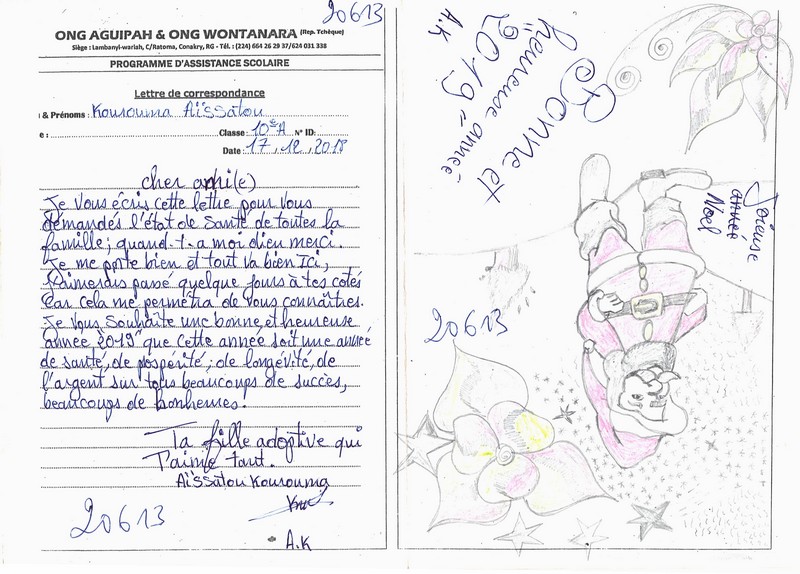 20613
ONG AGUIPAH & ONG WONTANARA (Rep. Tchèque)
Siège : Lambanyi-wariah, C/Ratoma, Conakry, RG - Tél. : (224) 664 26 29 37/624 031 338
PROGRAMME D'ASSISTANCE SCOLAIRE
Lettre de correspondance
& Prénoms : Kourouma Aïssatou
e : Classe : 10e A N° ID:
Date : 17 / 12 / 2018
cher ami(e)
Je vous écris cette lettre pour vous
demandés l'état de santé de toutes la
famille ; quand-t-a moi dieu merci.
Je me porte bien et tout va bien Ici,
J'aimerais passé quelque jours à tes cotés
Car cela me permétra de vous connaîtres.
Je vous souhaite une bonne et heureuse
année "2019" que cette année soit une année
de santé, de pospérité, de longévité, de
l'argent sur tous beaucoups de succès,
beaucoups de bonheures.
Ta fille adoptive qui
T'aime tant.
Aïssatou Kourouma
20613
A.K
Bonne et
heureuse année
2019
A.K
Joieuse
année
Noel
20613